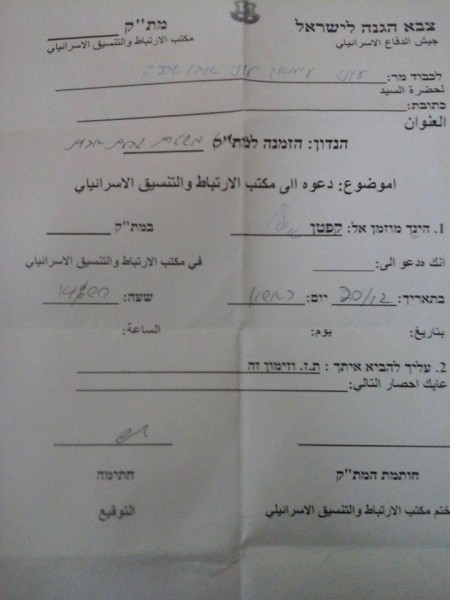 צבא הגנה לישראל מת"ק
جيش الدفاع الاسرائيلي مكتب الارتباط والتنسيق الاسرائيلي
לכבוד מר:
لحضرة السيد
כתובת:
العنوان
הנדון: הזמנה למת"ק
اموضوع: دعوه الى مكتب الارتباط والتنسيق الاسرائيلي
1. הינך מוזמן אל: קפטן במת"ק
انك مدعو الى: في مكتب الارتباط والتنسيق الاسرائيلي
בתאריך: 20/12 יום: ראשון שעה: 14:00
بتاريخ: يوم: الساعة:
2. עליך להביא איתך: ת.ז. וזימון זה
عايك احصار التالي:
חותמת המת"ק חתימה
ختم مكتب الارتباط والتنسيق الاسرائيلي التوقيع